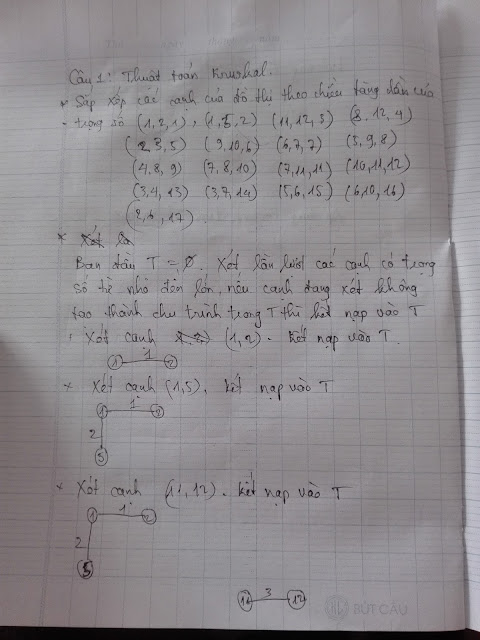 Câu 1: Thuật toán Kruskal.
* Sắp xếp các cạnh của đồ thị theo chiều tăng dần của
trọng số (1, 2, 1), (1, 5, 2) (11, 12, 3) (8, 12, 4)
(2, 3, 5) (9, 10, 6) (6, 7, 7) (5, 9, 8)
(4, 8, 9) (7, 8, 10) (7, 11, 11) (10, 11, 12)
(3, 4, 13) (3, 7, 14) (5, 6, 15) (6, 10, 16)
(2, 6, 17)
*
Ban đầu T = ∅. Xét lần lượt các cạnh có trọng
số từ nhỏ đến lớn, nếu cạnh đang xét không
tạo thành chu trình trong T thì kết nạp vào T
* Xét cạnh (1, 2). Kết nạp vào T.
1 1 2
* Xét cạnh (1, 5), kết nạp vào T
1 1 2
2
5
* Xét cạnh (11, 12). kết nạp vào T
1 1 2
2
5
11 3 12
BÚT CÂU